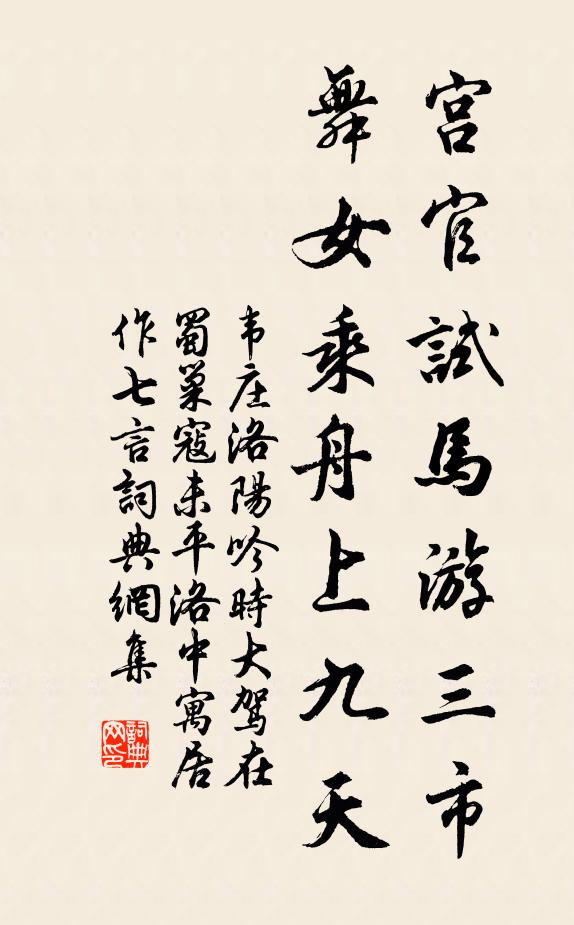 宫官試馬游三市
舞女乘舟上九天
韦庄洛陽吟時大驾在
蜀巢寇未平洛中寓居
作七言詞典網集
詞典
网印